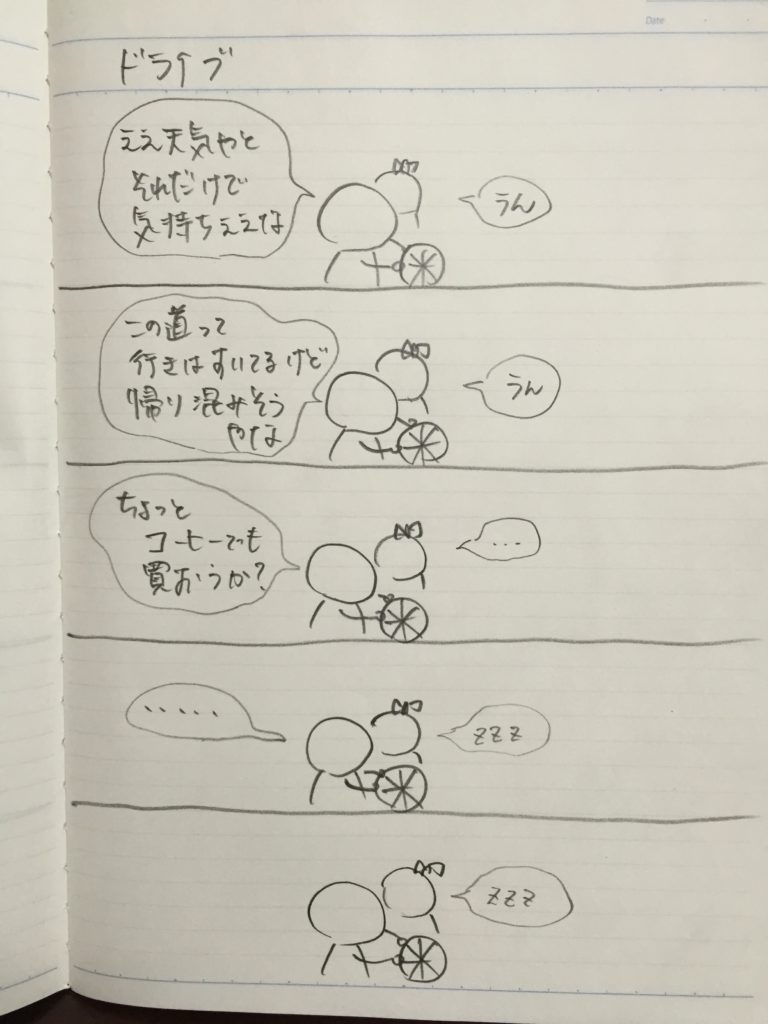 Date
ドライブ
ええ天気やと
それだけで
気持ちええな
うん
この道って
行きはすいてるけど
帰り混みそう
やな
うん
ちょっと
コーヒーでも
買おうか?
...
.....
zzz
zzz